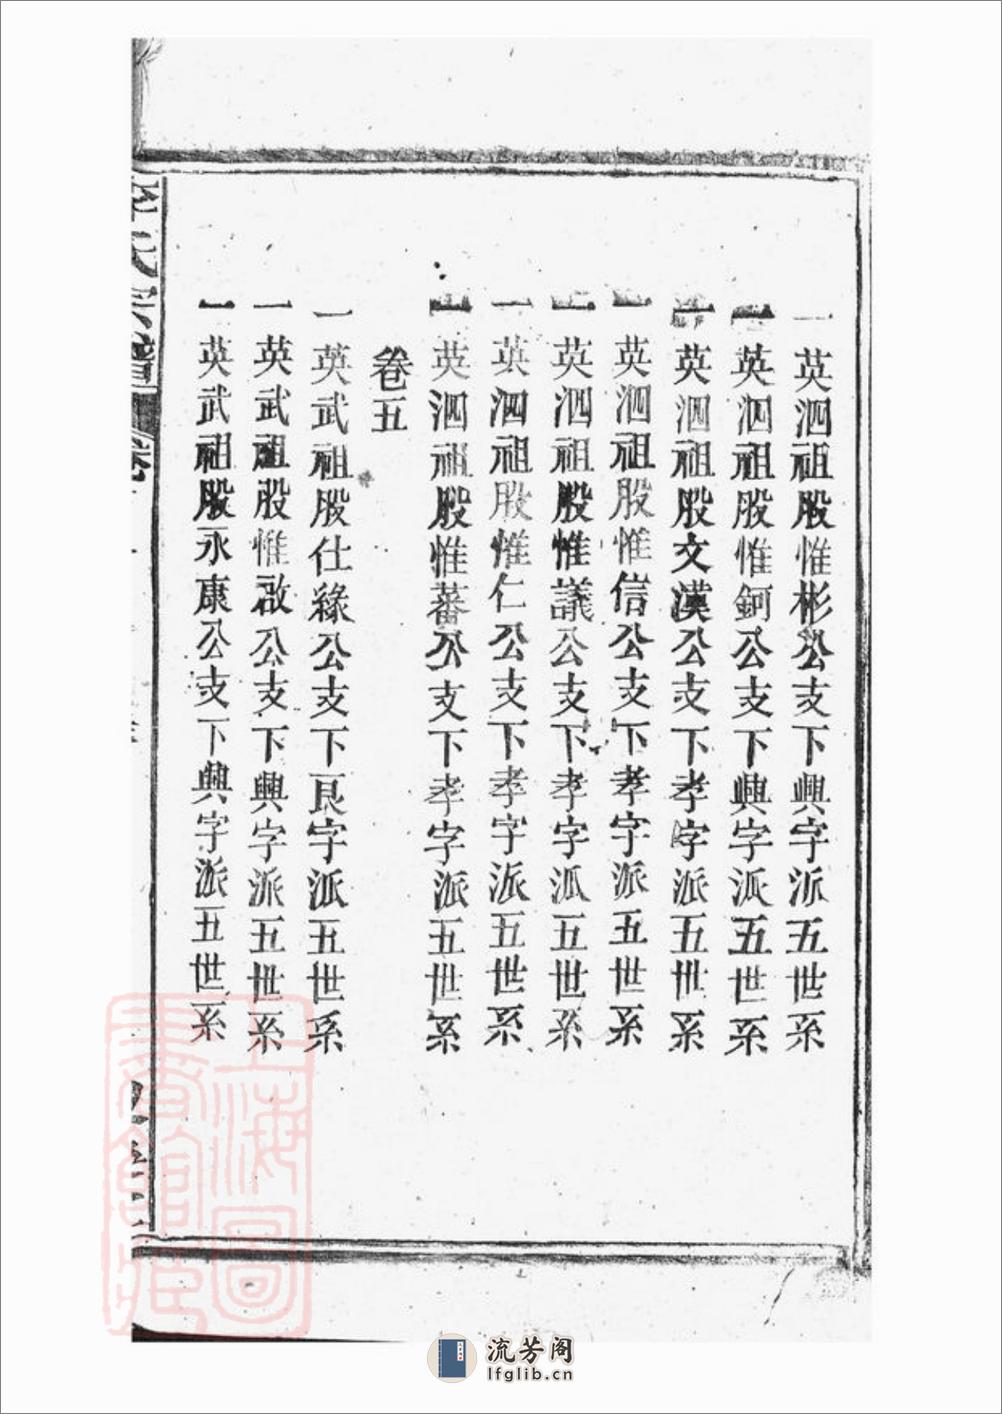 一英泗祖股惟彬公支下興字派五世系
一英泗祖股惟鈳公支下興字派五世系
一英泗祖股文漢公支下孝字派五世系
一英泗祖股惟信公支下孝字派五世系
一英泗祖股惟議公支下孝字派五世系
一英泗祖股惟仁公支下孝字派五世系
一英泗祖股惟蕃公支下孝字派五世系
卷五
一英武祖股仕緣公支下良字派五世系
一英武祖股惟啟公支下興字派五世系
一英武祖股永康公支下興字派五世系
李氏宗譜
上海圖書館藏
流芳阁
lfglib.cn